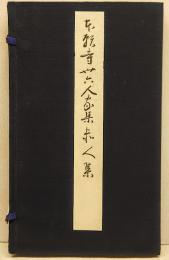 本願寺卅六人家集赤人集